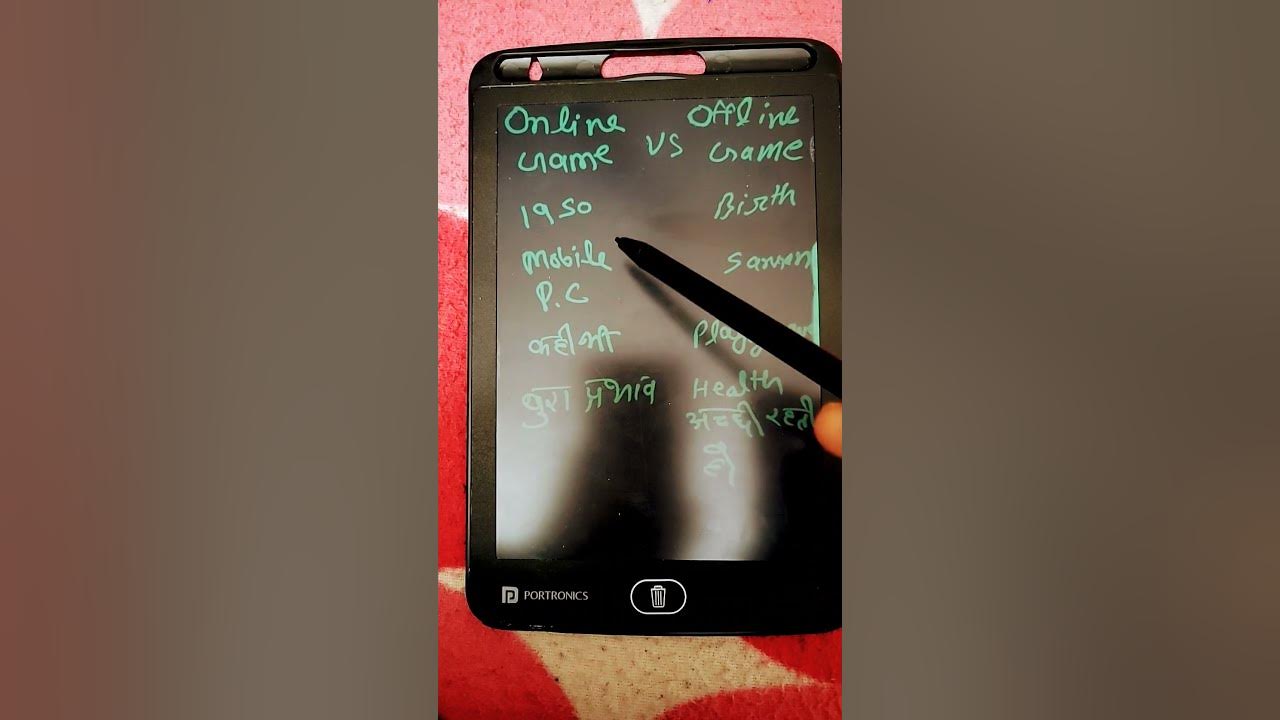 Online
Game
VS
Offline
Game
1950
Birth
Mobile
P.C
कही भी
बुरा प्रभाव
Health
अच्छी रहती
है
PORTRONICS